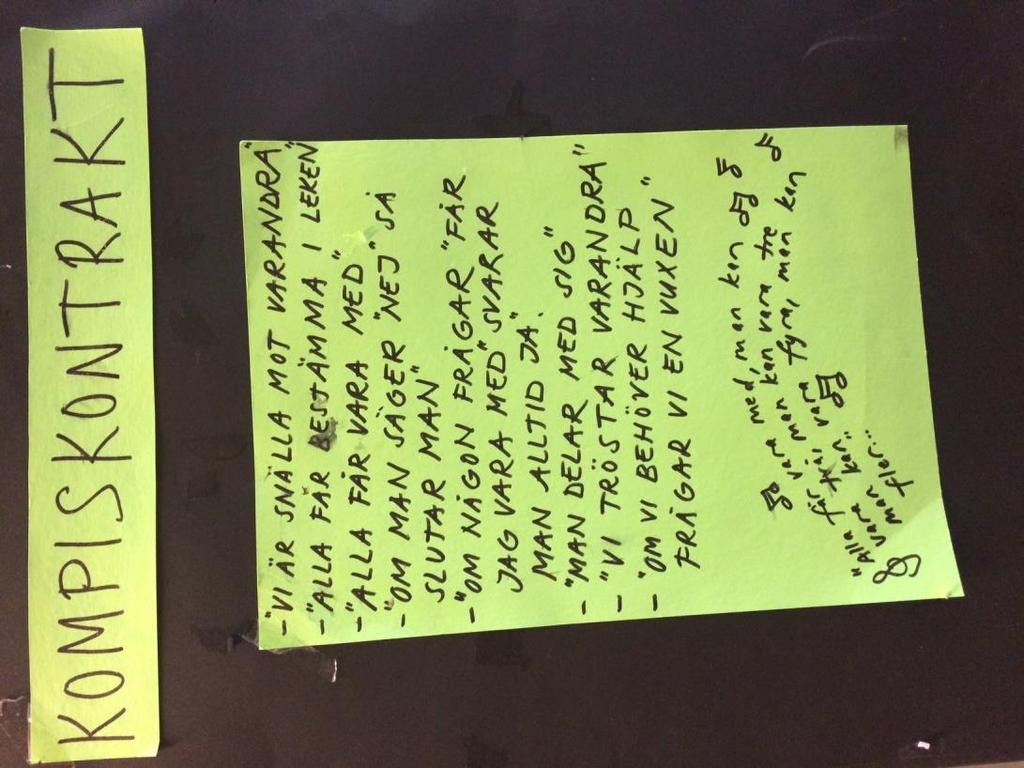 KOMPISKONTRAKT
- "VI ÄR SNÄLLA MOT VARANDRA"
- "ALLA FÅR BESTÄMMA I LEKEN"
- "ALLA FÅR VARA MED"
- "OM MAN SÄGER "NEJ" SÅ
SLUTAR MAN"
- "OM NÅGON FRÅGAR "FÅR
JAG VARA MED" SVARAR
MAN ALLTID JA".
- "MAN DELAR MED SIG"
- "VI TRÖSTAR VARANDRA"
- "OM VI BEHÖVER HJÄLP
FRÅGAR VI EN VUXEN"
"Alla får vara med, man kan
vara två, man kan vara tre
man kan vara fyra, man kan
fler...